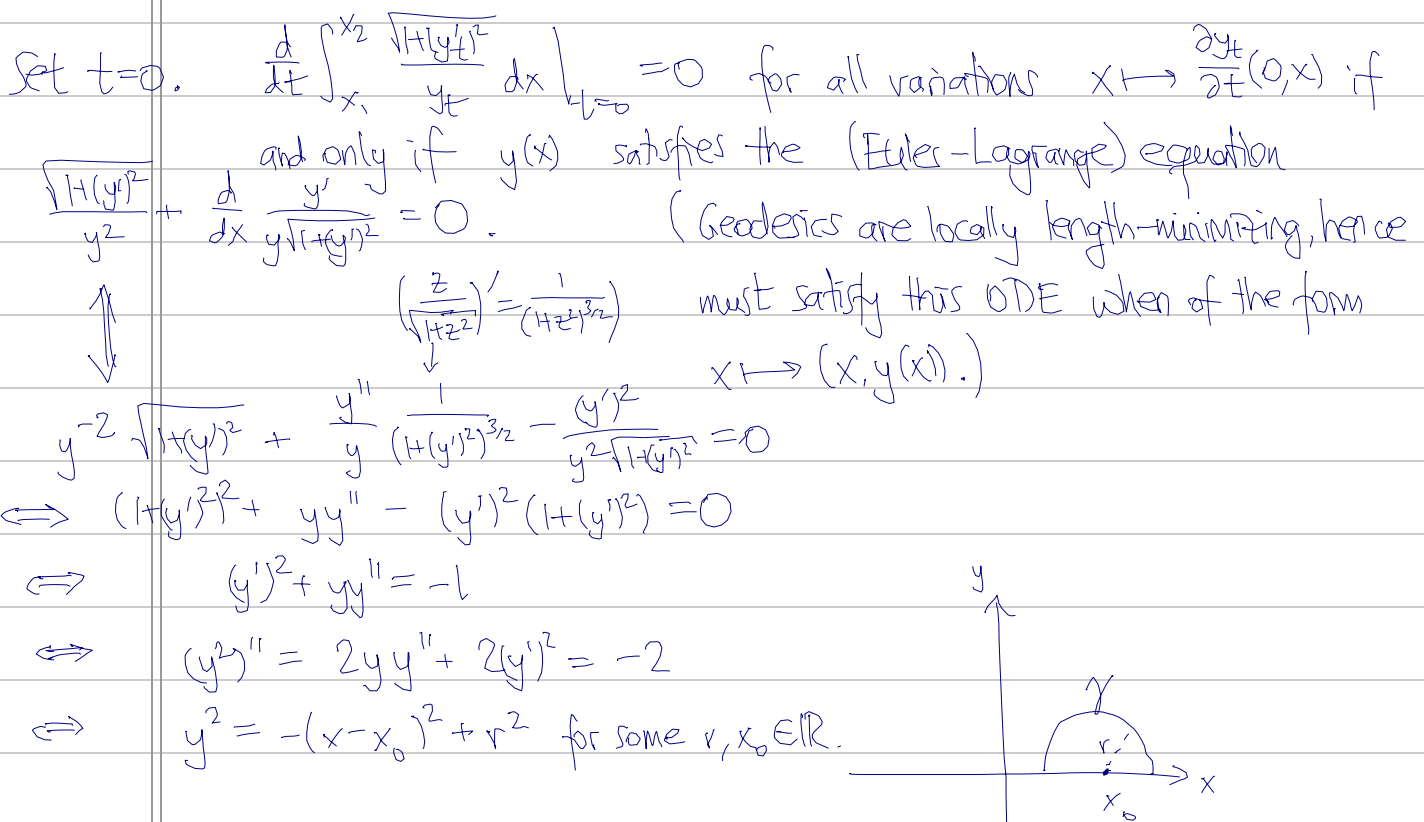 Set t=0. d/dt ∫_{x₁}^{x₂} √(1+(y_t')²)/y_t dx |_{t=0} = 0 for all variations x ↦ ∂y_t/∂t (0,x) if
and only if y(x) satisfies the (Euler-Lagrange) equation
√(1+(y')²)/y² + d/dx y'/(y√(1+(y')²)) = 0.
(Geodesics are locally length-minimizing, hence
must satisfy this ODE when of the form
x ↦ (x, y(x)).)
(z/√(1+z²))' = 1/(1+z²)^{3/2}
y⁻² √(1+(y')²) + y''/y 1/(1+(y')²)^{3/2} − (y')²/(y²√(1+(y')²)) = 0
⟺ (1+(y')²)² + yy'' − (y')²(1+(y')²) = 0
⟺ (y')² + yy'' = −1
⟺ (y²)'' = 2yy'' + 2(y')² = −2
⟺ y² = −(x−x₀)² + r² for some r, x₀ ∈ ℝ.
y
γ
r
x
x₀